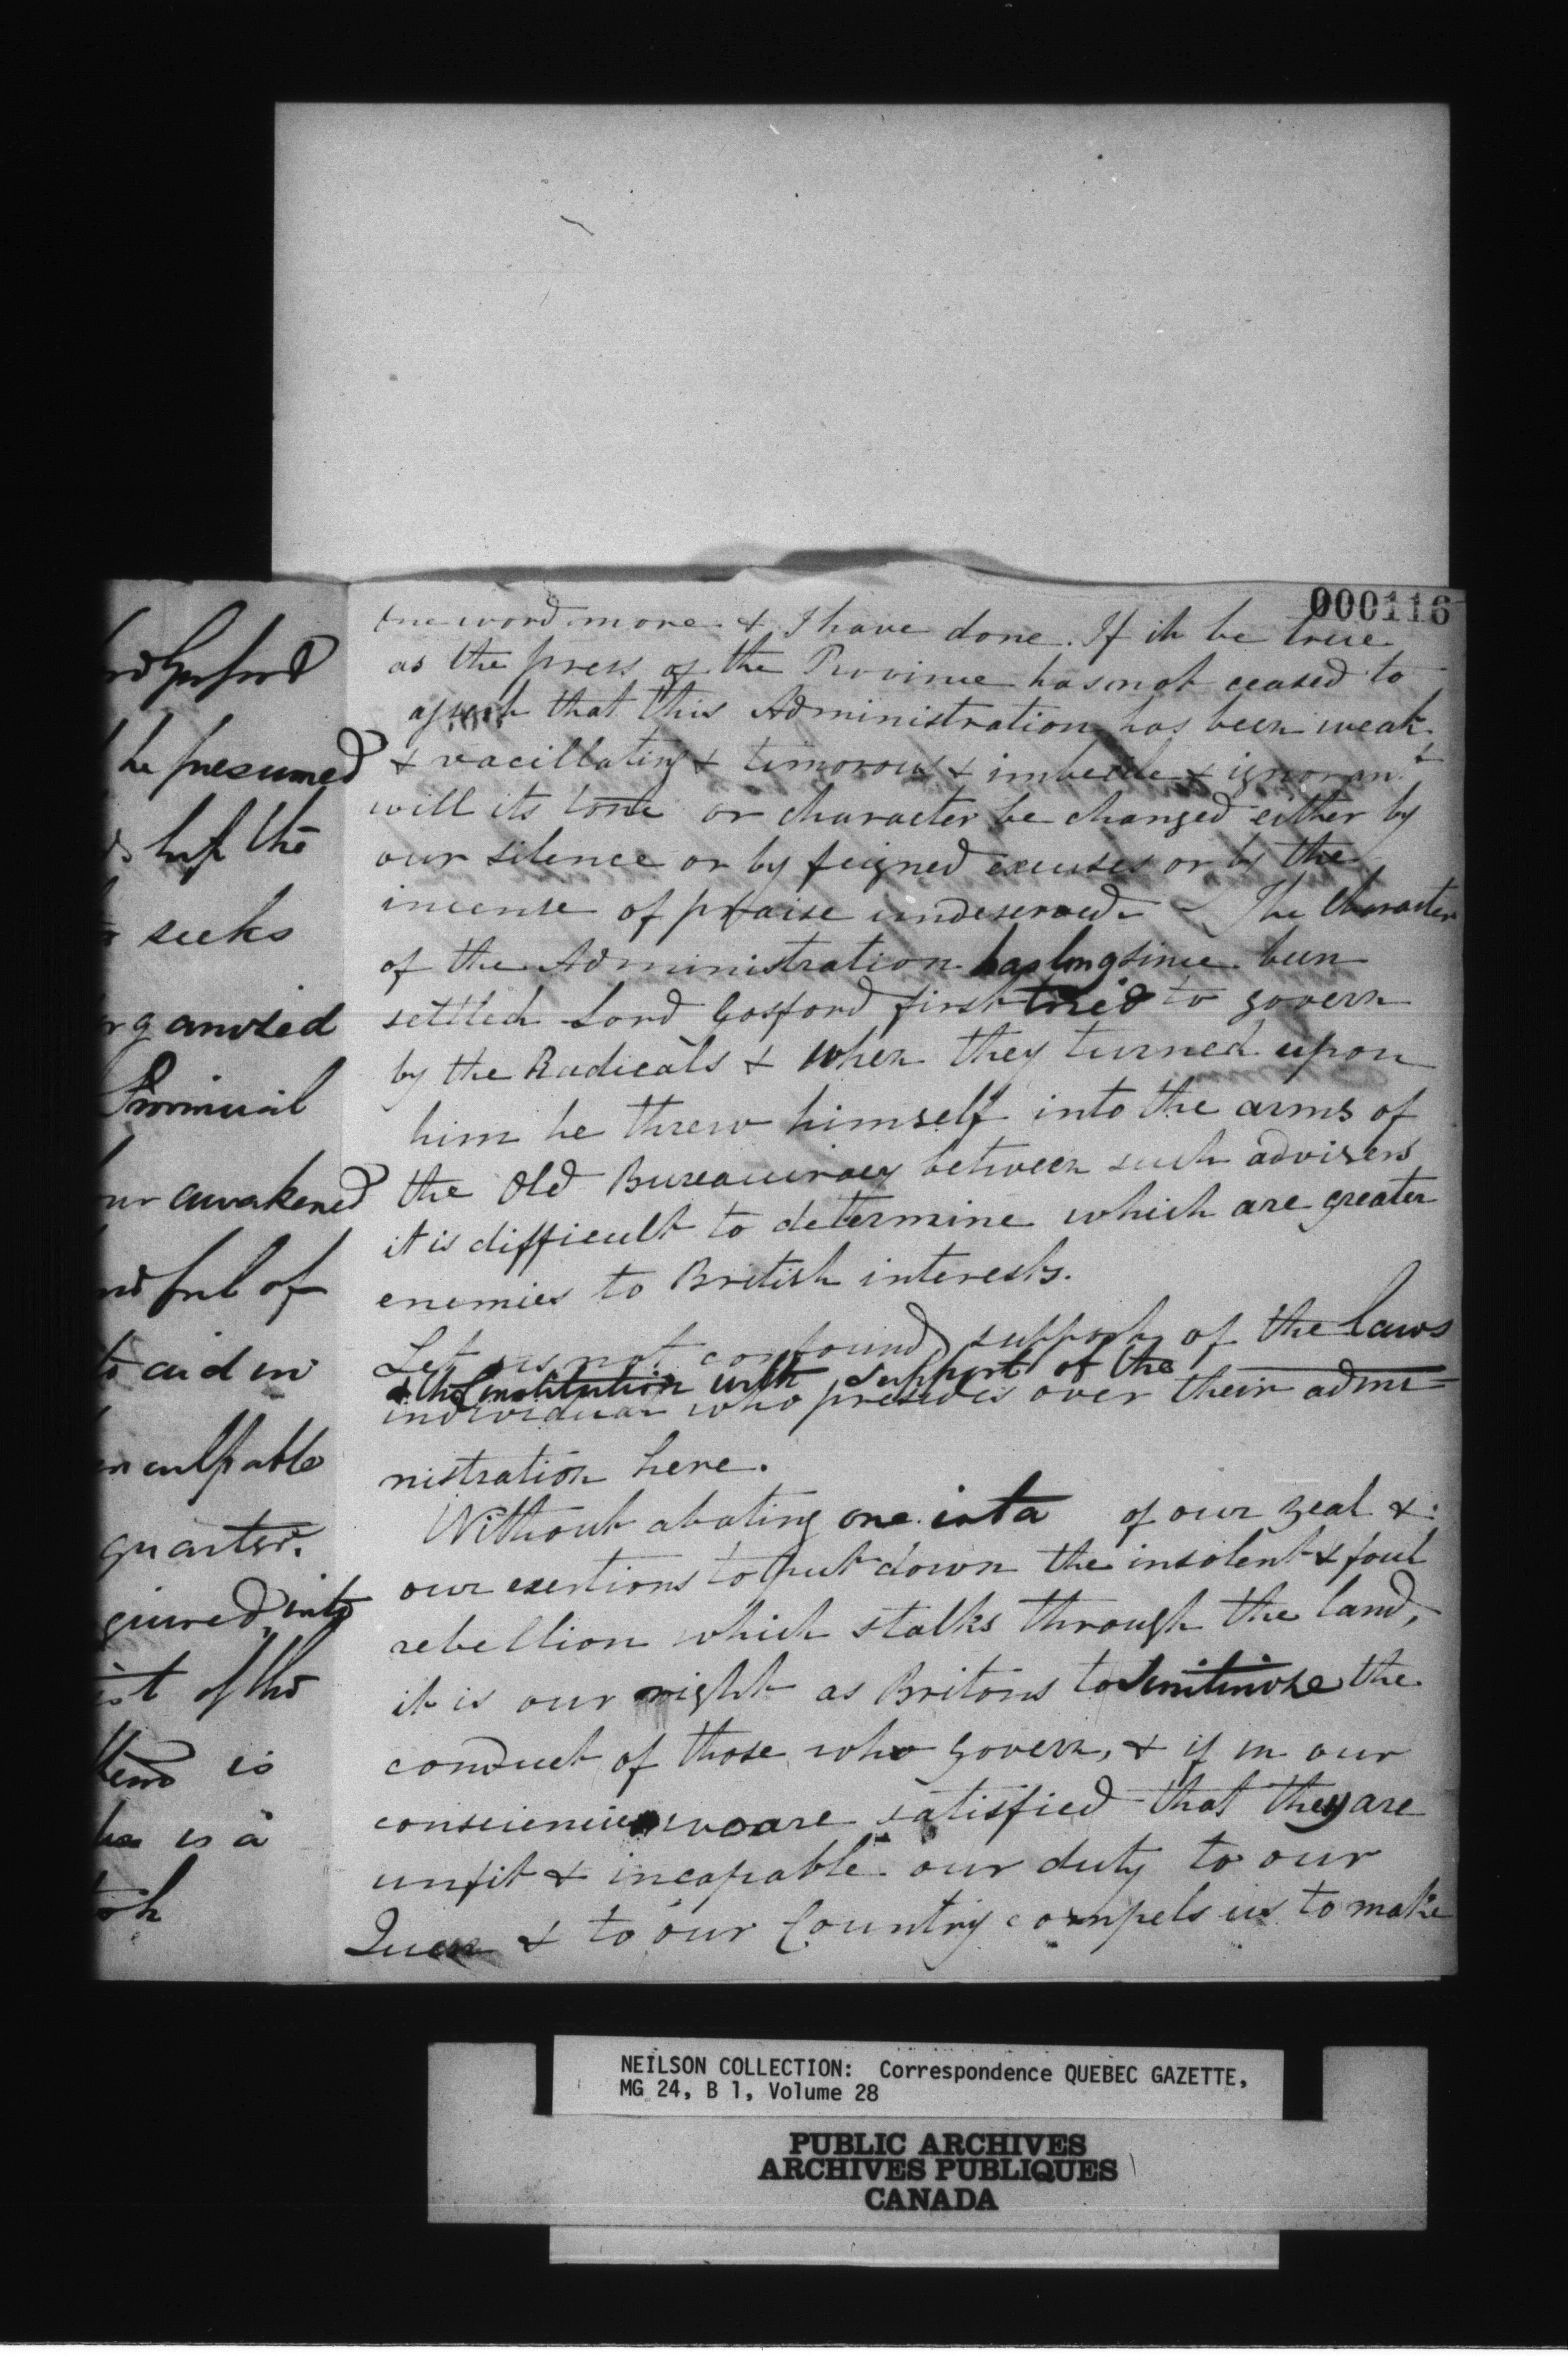 000116
one word more & I have done. If it be true
as the press of the Province has not ceased to
assert that this Administration has been weak
& vacillating & timorous & imbecile & ignorant
will its tone or character be changed either by
our silence or by feigned excuses or by the
incense of praise undeserved - The Character
of the Administration has long since been
settled Lord Gosford first tried to govern
by the Radicals & when they turned upon
him he threw himself into the arms of
the Old Bureaucracy between such advisers
it is difficult to determine which are greater
enemies to British interests.
Let us not confound support of the laws
& the Constitution with support of the
individual who presides over their admi-
nistration here.
Without abating one iota of our zeal &
our exertions to put down the insolent & foul
rebellion which stalks through the land,
it is our right as Britons to scrutinize the
conduct of those who govern, & if in our
consciences we are satisfied that they are
unfit & incapable our duty to our
Queen & to our Country compels us to make
he presumed
the
seeks
organized
Provincial
our awakened
of
to aid in
culpable
quarter.
into
of the
is
is a
NEILSON COLLECTION: Correspondence QUEBEC GAZETTE,
MG 24, B 1, Volume 28
PUBLIC ARCHIVES
ARCHIVES PUBLIQUES
CANADA